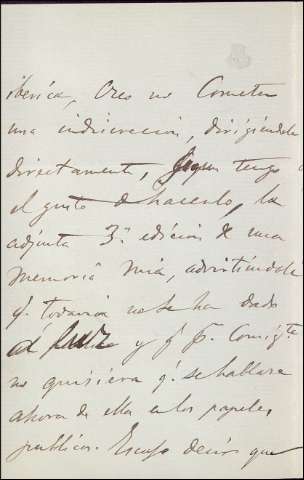 ibérica, Creo no Cometer
una indiscrecion, dirigiéndole
directamente, segun tengo
el gusto de hacerlo, la
adjunta 3ª edicion de una
Memoria mia, advirtiéndole
q. todavia no se ha dado
á luz y q. p. Consigte
no quisiera q. se hablara
ahora de ella en los papeles
publicos. Escuso decir que